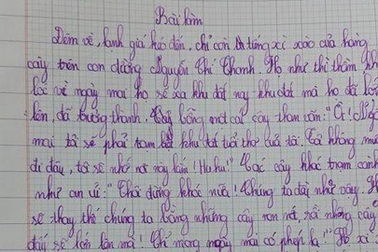 Bài làm
Đêm về, lạnh giá kéo đến, chỉ còn là tiếng xì xào của hàng
cây trên con đường Nguyễn Chí Thanh. Họ như thì thầm kh
lóc về ngày mai họ sẽ xa khu đất này khu đất mà họ đã lớn
lên, đã trưởng thành. Bỗng một cái cây than vãn: "Ôi!
mai tôi sẽ phải tạm biệt khu đất tuổi thơ của tôi. Tôi không muốn
đi đâu, tôi sẽ nhớ nơi này lắm! Hu hu!" Các cây khác tram canh
như an ủi: "Thôi đừng khóc nữa! Chúng ta đây nhớ này.
sẽ thay thế chúng ta bằng những cây non nớt, rồi những cây
đấy sẽ lớn lên mà! Chỉ mong ngày mai có phép lạ!" Họ xì